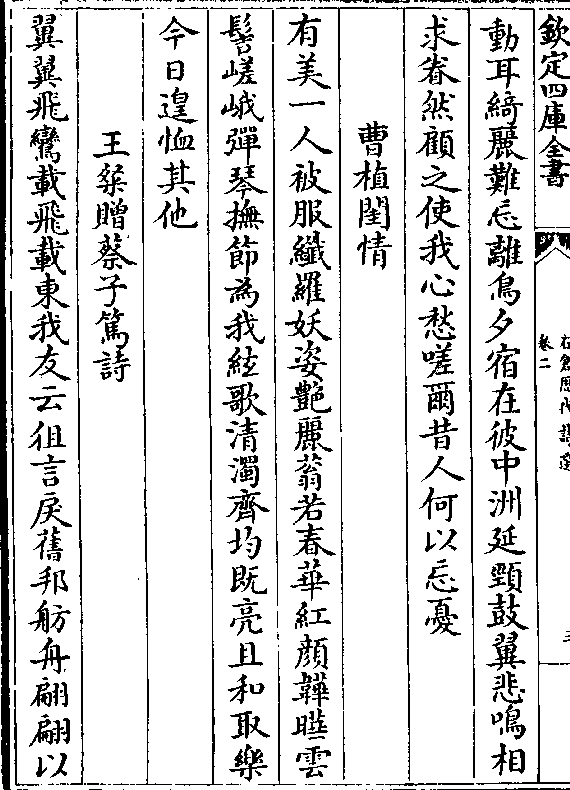 欽定四庫全書
卷二
動耳綺麗難忘離鳥夕宿在彼中洲延頸鼓翼悲鳴相
求眷然顧之使我心愁嗟爾昔人何以忘憂
曹植閨情
有美一人被服纖羅妖姿艷麗蓊若春華紅顔韡曄雲
髻嵯峨彈琴撫節為我絃歌清濁齊均既亮且和取樂
今日遑恤其他
王粲贈蔡子篤詩
翼翼飛鸞載飛載東我友云徂言戾舊邦舫舟翩翩以